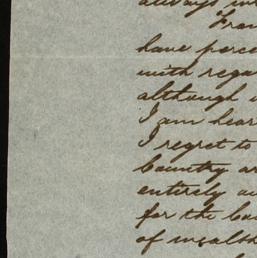 always
Fran
have perce
with rega
although
I am hear
I regret to
Country ar
entirely
for the
of wealth